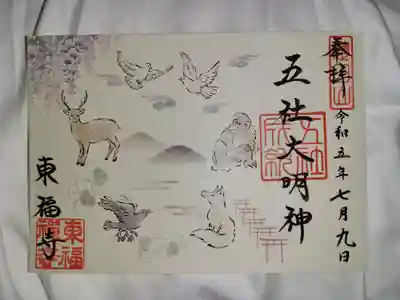 奉拝
令和五年七月九日
五社大明神
東福寺
東福寺